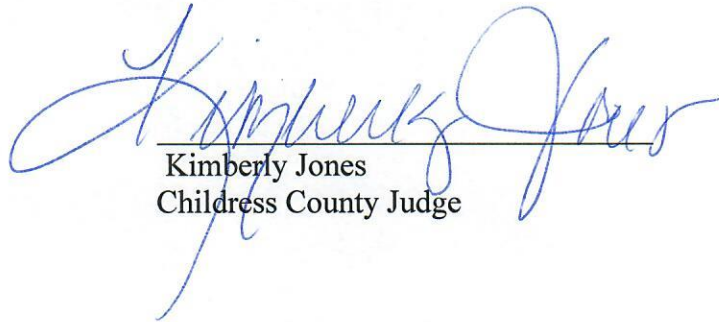 Kimberly Jones
Kimberly Jones
Childress County Judge